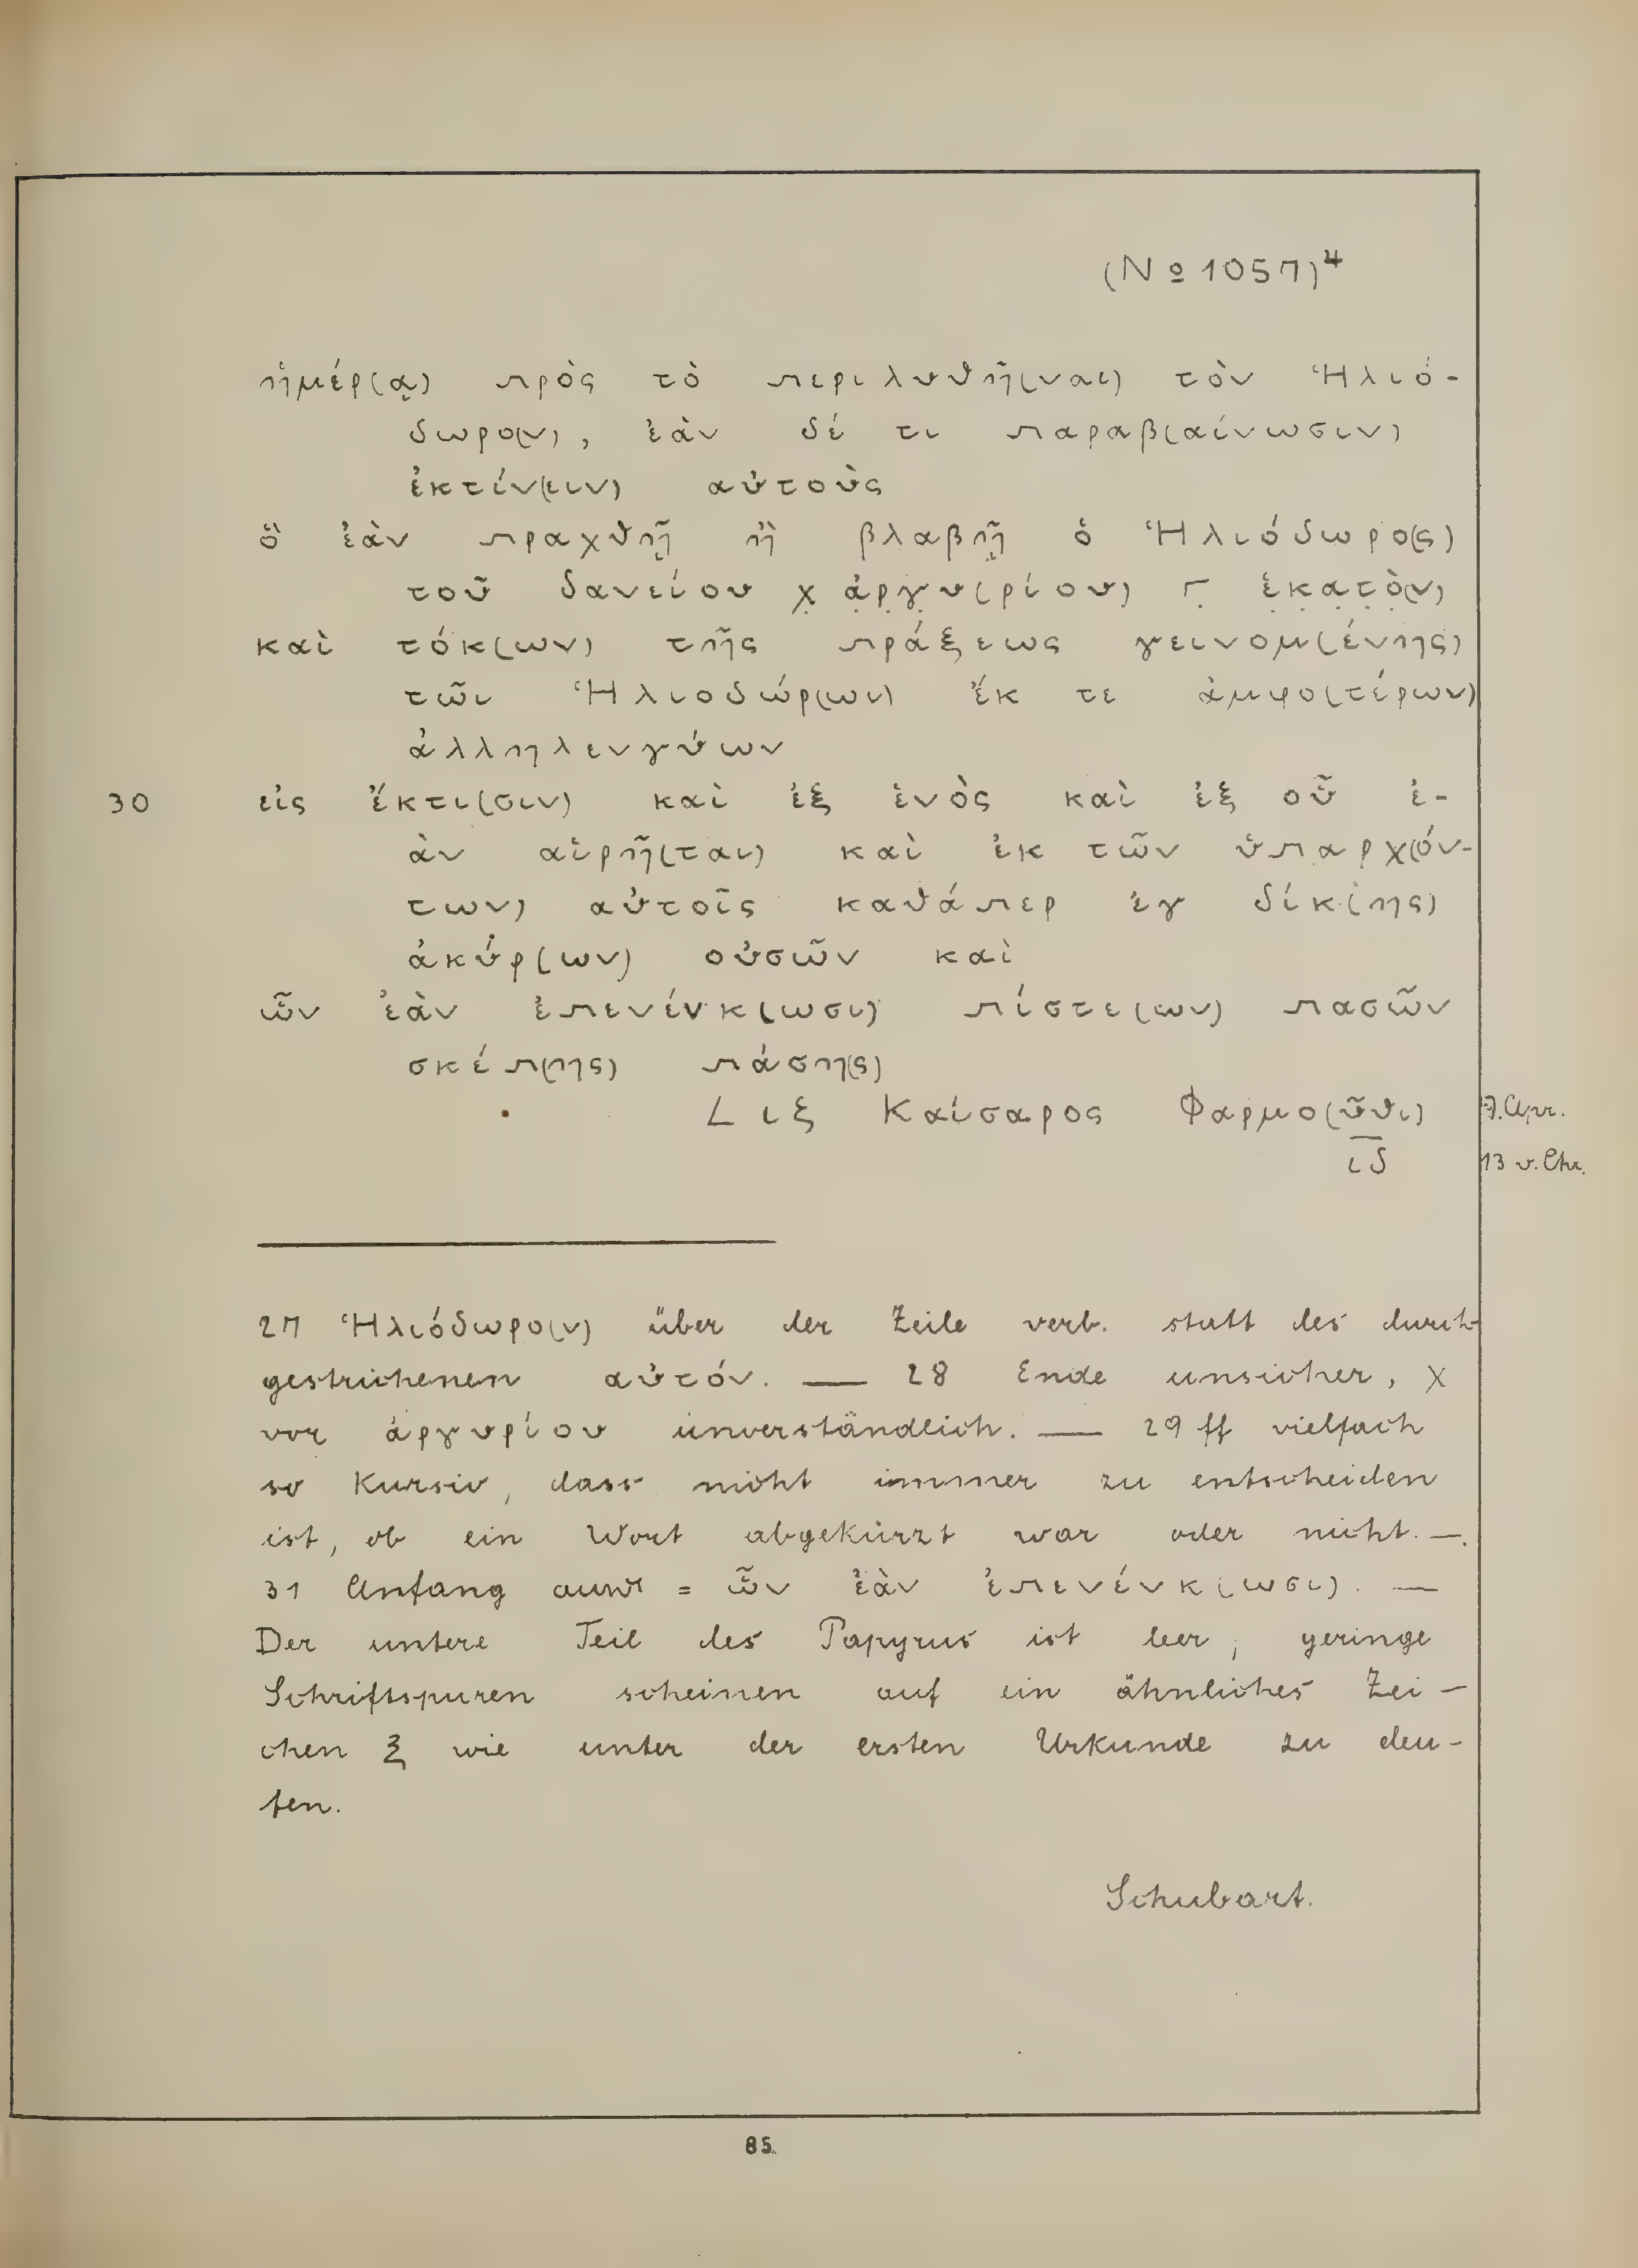 (№ 1057)⁴
ἡμέρ(ᾳ) πρὸς τὸ περιλυθῆ(ναι) τὸν Ἡλιό-
δωρο(ν), ἐὰν δέ τι παραβ(αίνωσιν)
ἐκτίν(ειν) αὐτοὺς
ὃ ἐὰν πραχθῇ ἢ βλαβῇ ὁ Ἡλιόδωρο(ς)
τοῦ δανείου χ̣ ἀ̣ρ̣γ̣υ̣(ρίου) 𐅂 ἑ̣κ̣α̣τ̣ὸ̣(ν)
καὶ τόκ(ων) τῆς πράξεως γεινομ(ένης)
τῶι Ἡλιοδώρ(ωι) ἔκ τε ἀμφο(τέρων)
ἀλληλενγύων
30 εἰς ἔκτι(σιν) καὶ ἐξ ἑνὸς καὶ ἐξ οὗ ἐ-
ὰν αἱρῆ(ται) καὶ ἐκ τῶν ὑπαρχ(όν-
των) αὐτοῖς καθάπερ ἐγ δίκ(ης)
ἀκύρ(ων) οὐσῶν καὶ
ὧν ἐὰν ἐπενένκ(ωσι) πίστε(ων) πασῶν
σκέπ(ης) πάση(ς)
L ιξ Καίσαρος Φαρμο(ῦθι) 7. Apr.
ι̅δ̅ 13 v. Chr.
27 Ἡλιόδωρο(ν) über der Zeile verb. statt des durch-
gestrichenen αὐτόν. — 28 Ende unsicher, χ
vor ἀργυρίου unverständlich. — 29 ff vielfach
so kursiv, dass nicht immer zu entscheiden
ist, ob ein Wort abgekürzt war oder nicht. —.
31 Anfang = ὧν ἐὰν ἐπενένκ(ωσι). —
Der untere Teil des Papyrus ist leer; geringe
Schriftspuren scheinen auf ein ähnliches Zei-
chen ξ wie unter der ersten Urkunde zu deu-
ten.
Schubart.
85